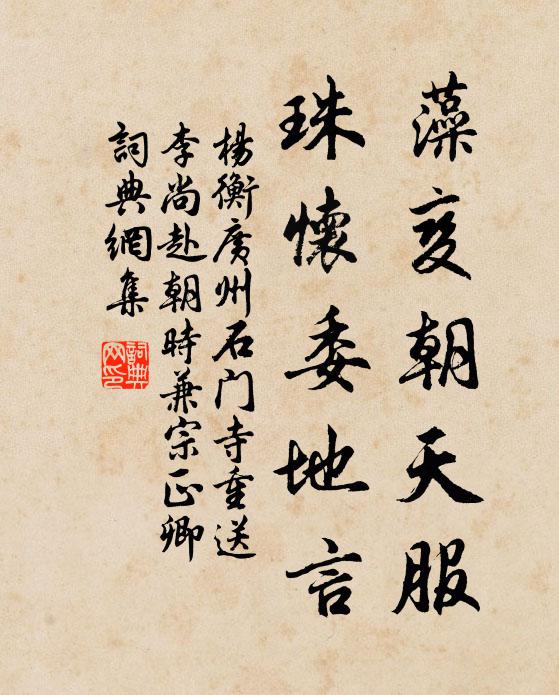 藻变朝天服
珠懷委地言
楊衡廣州石门寺重送
李尚赴朝時兼宗正卿
詞典網集
詞典网印